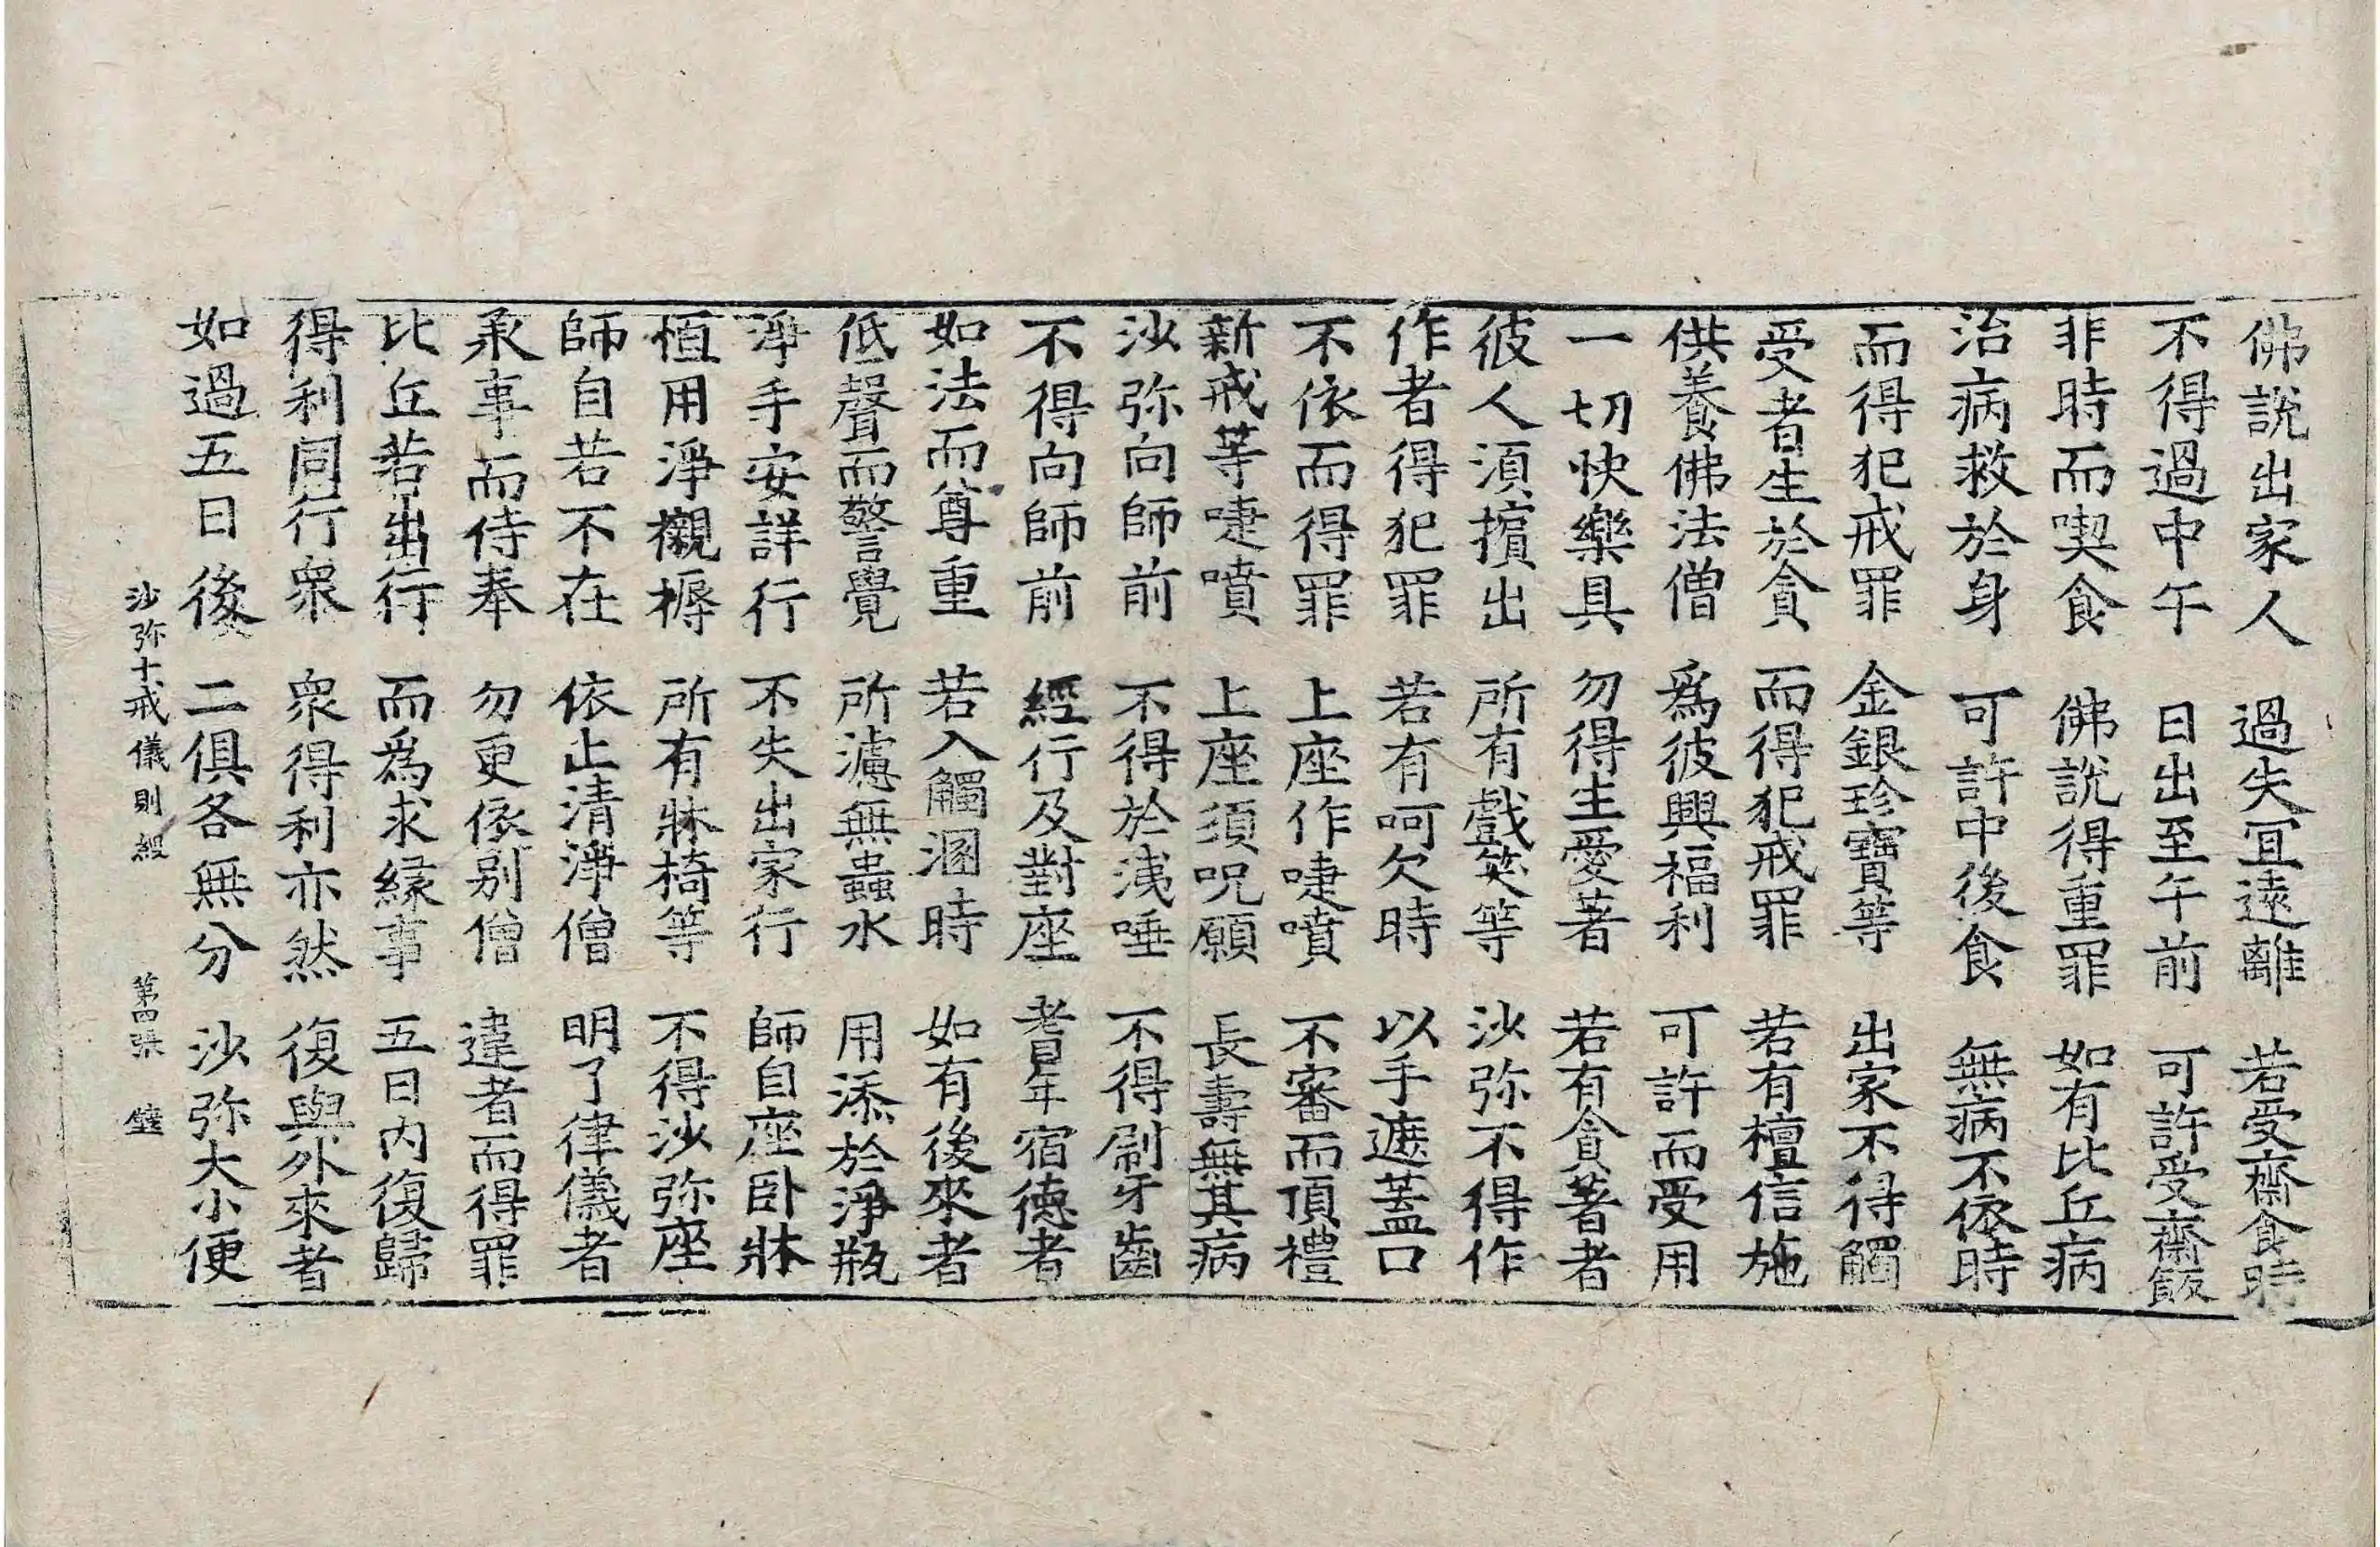 佛說出家人 過失冝遠離 若受齋食時
不得過中午 日出至午前 可許受齋飯
非時而喫食 佛說得重罪 如有比丘病
治病救於身 可許中後食 無病不依時
而得犯戒罪 金銀珍寶等 出家不得觸
受者生於貪 而得犯戒罪 若有檀信施
供養佛法僧 爲彼興福利 可許而受用
一切快樂具 勿得生愛著 若有貪著者
彼人須擯出 所有戲笑等 沙弥不得作
作者得犯罪 若有呵欠時 以手遮蓋口
不依而得罪 上座作嚏噴 不審而頂禮
新戒等嚏噴 上座須呪願 長壽無其病
沙弥向師前 不得於洟唾 不得刷牙齒
不得向師前 經行及對座 耆年宿德者
如法而尊重 若入觸溷時 如有後來者
低聲而警覺 所濾無蟲水 用添於淨瓶
淨手安詳行 不失出家行 師自座卧牀
恒用淨襯褥 所有牀椅等 不得沙弥座
師自若不在 依止清淨僧 明了律儀者
承事而侍奉 勿更依別僧 違者而得罪
比丘若出行 而爲求緣事 五日內復歸
得利同行衆 衆得利亦然 復與外來者
如過五日後 二俱各無分 沙弥大小便
沙弥十戒儀則經 第四張